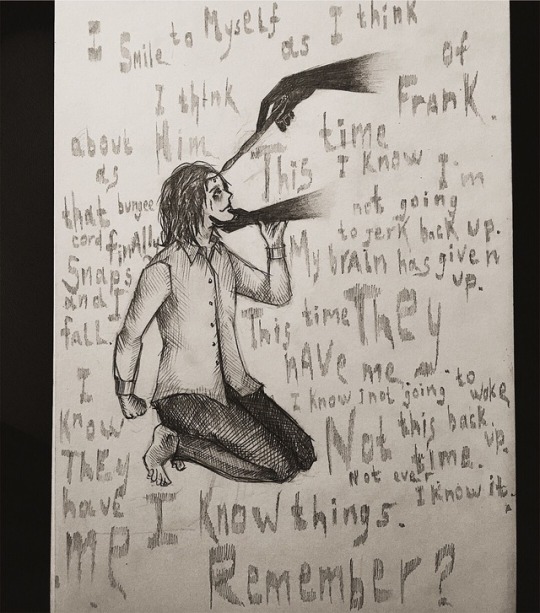 I Smile to Myself as I think of
Frank.
I think
about Him
as
that bungee
cord finally
Snaps
and I
fall.
This time
I know I'm
not going
to jerk back up.
My brain has given
up.
This time They
have me.
I know I not going to woke
back up.
Not this
time.
Not ever.
I know it.
I
Know
They
have
me
I Know things.
Remember?